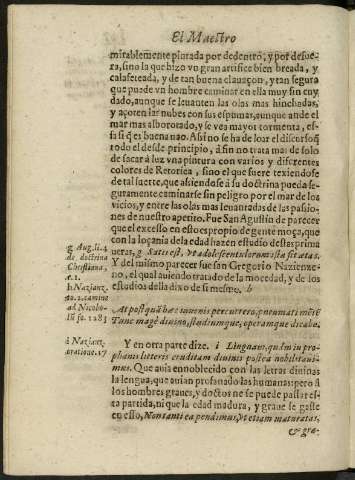 El Maestro
mirablemente pintada por dedentro, y por defue-
ra, sino la que hizo vn gran artifice bien breada, y
calafeteada, y de tan buena clauaçon, y tan segura
que puede vn hombre caminar en ella muy sin cuy
dado, aunque se leuanten las olas mas hinchadas,
y açoten las nubes con sus espumas, aunque ande el
mar mas alborotado, y se vea mayor tormenta, es-
sa si q̃ es buena nao. Assi no se ha de loar el discurso q̃
todo el desde principio, a fin no trata mas de solo
de sacar à luz vna pintura con varios y diferentes
colores de Retorica, sino el que fuere texiendose
de tal suerte, que asiendose â su doctrina pueda se-
guramente caminarse sin peligro por el mar de los
vicios, y entre las olas mas leuantadas de las passio-
nes de nuestro apetito. Fue San Agustin de parecer
que el excesso en esto es propio de gente moça, que
con la loçania de la edad hazen estudio destas prima
ueras, g Satis est, vt adolescentulorum ista sit ætas.
Y del mismo parecer fue san Gregorio Nazienze-
no, el qual auiendo tratado de la mocedad, y de los
estudios della dixo de si mesmo. h
At postquã hæc iuuenis percurrero, pneumati mētē
Tunc magē diuino, studiumque, operamque dicabo.
Y en otra parte dize. i Linguam, quàm in pro-
phanis litteris eruditam diuinis postea nobilitaui-
mus. Que auia ennoblecido con las letras diuinas
la lengua, que auian profanado las humanas: pero â
los hombres graues, y doctos no se puede passar es-
ta partida, ni que la edad madura, y graue se gaste
en esso, Non tanti ea pendimus, vt etiam maturatas,
& gra-
g Aug. li. 4
de doctrina
Christiana,
c. 1.
h Nazianz.
to. 2. carmine
ad Nicobo-
lũ fo. 1285
i Nazianz.
oratione. 27